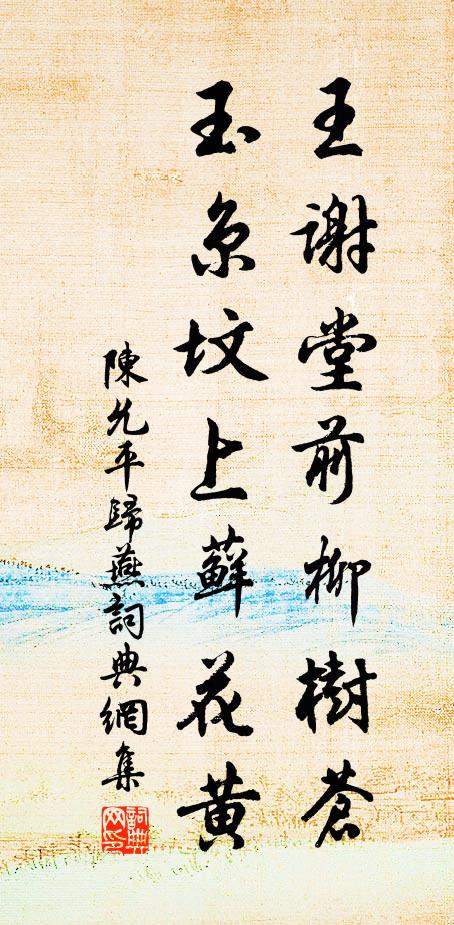 王謝堂前柳樹蒼
玉京墳上蘚花黃
陳允平歸燕詞典網集